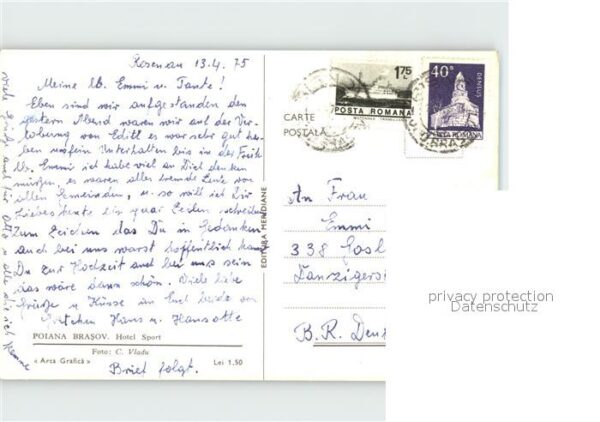 Rosenau 13.4.75
Meine lb. Emmi u. Tante!
Eben sind wir aufgestanden den
gestern Abend waren wir auf der Ver-
lobung von Edith es war sehr gut ha-
ben uns fein Unterhalten bis in der Früh
lb. Emmi ich habe viel an Dich denken
müssen es waren alles fremde Leute von
allen Gemeinden, u. so will ich Dir
Liebes heute ein paar Zeilen schreiben
Zum Zeichen das Du in Gedanken
auch bei uns warst hoffentlich kannst
Du zur Hochzeit auch bei uns sein
das wäre dann schön. Viele liebe
Grüße u Küsse an Euch beide von
Gretchen Hans u. Hansotto
POIANA BRAȘOV. Hotel Sport
Foto: C. Vladu
« Arta Grafică » Lei 1,50
Brief folgt.
viele Grüße auch für Otto u alle die ich kenne
EDITURA MERIDIANE
CARTE
POȘTALĂ
1,75
POSTA ROMANA
40B
DENSUS
POSTA ROMANA
An Frau
Emmi
338 Gosl
Danzigerst
B. R. Deu
privacy protection
Datenschutz